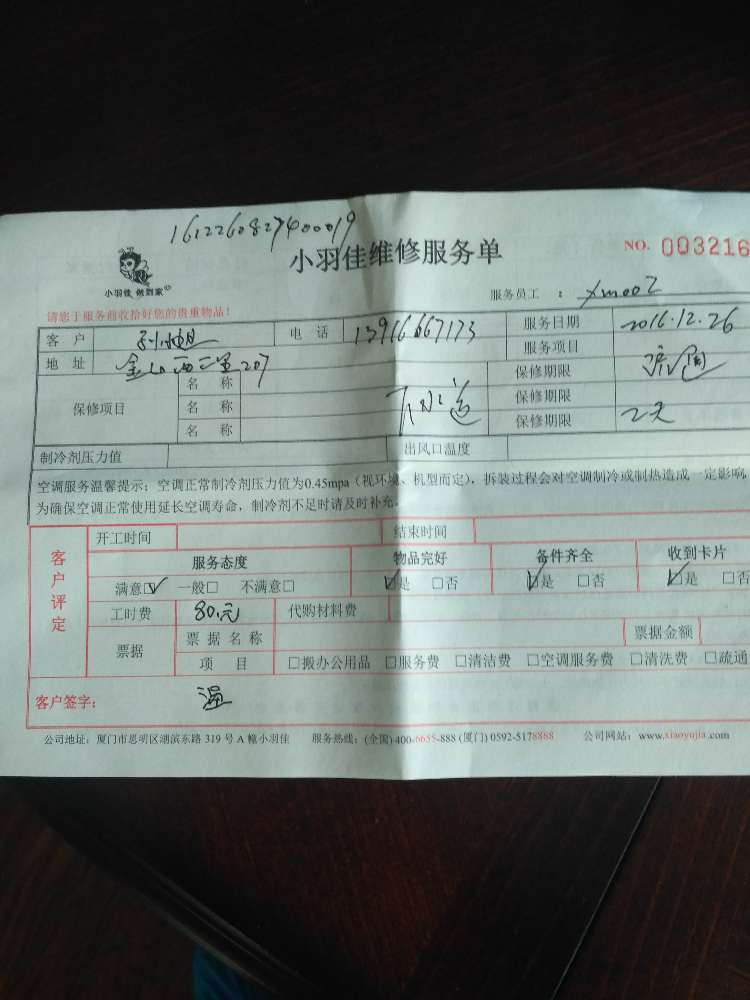 1612260827400019
小羽佳维修服务单
NO. 003216
小羽佳 做到家
服务员工 : xm002
请您于服务前收拾好您的贵重物品!
客 户 电 话 13916667173 服务日期 2016.12.26
地 址 金山西二里207 服务项目 疏通
保修项目 名 称 下水道 保修期限
名 称 保修期限
名 称 保修期限 2天
制冷剂压力值 出风口温度
空调服务温馨提示:空调正常制冷剂压力值为0.45mpa(视环境、机型而定),拆装过程会对空调制冷或制热造成一定影响,
为确保空调正常使用延长空调寿命,制冷剂不足时请及时补充。
客户评定
开工时间 结束时间
服务态度 物品完好 备件齐全 收到卡片
满意☑ 一般□ 不满意□ ☑是 □否 ☑是 □否 ☑是 □否
工时费 80.元 代购材料费
票据 票 据 名 称 票据金额
项 目 □搬办公用品 □服务费 □清洁费 □空调服务费 □清洗费 □疏通
客户签字: 温
公司地址:厦门市思明区湖滨东路 319 号 A 幢小羽佳 服务热线:(全国) 400-6655-888 (厦门) 0592-5178888 公司网站:www.xiaoyujia.com